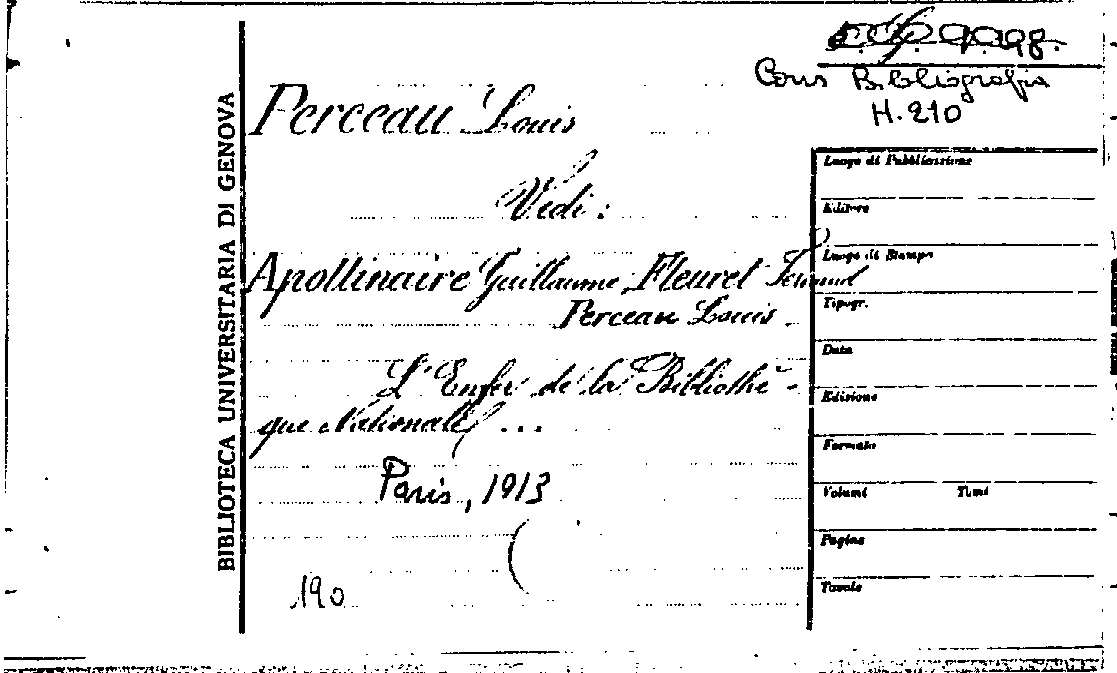 Cons Bibliografia
H. 210
BIBLIOTECA UNIVERSITARIA DI GENOVA
Perceau Louis
Vedi:
Apollinaire Guillaume, Fleuret Fernand
Perceau Louis
L'Enfer de la Bibliothè-
que Nationale ...
Paris, 1913
190
Luogo di Pubblicazione
Editore
Luogo di Stampa
Tipogr.
Data
Edizione
Formato
Volumi Tomi
Pagine
Tavole